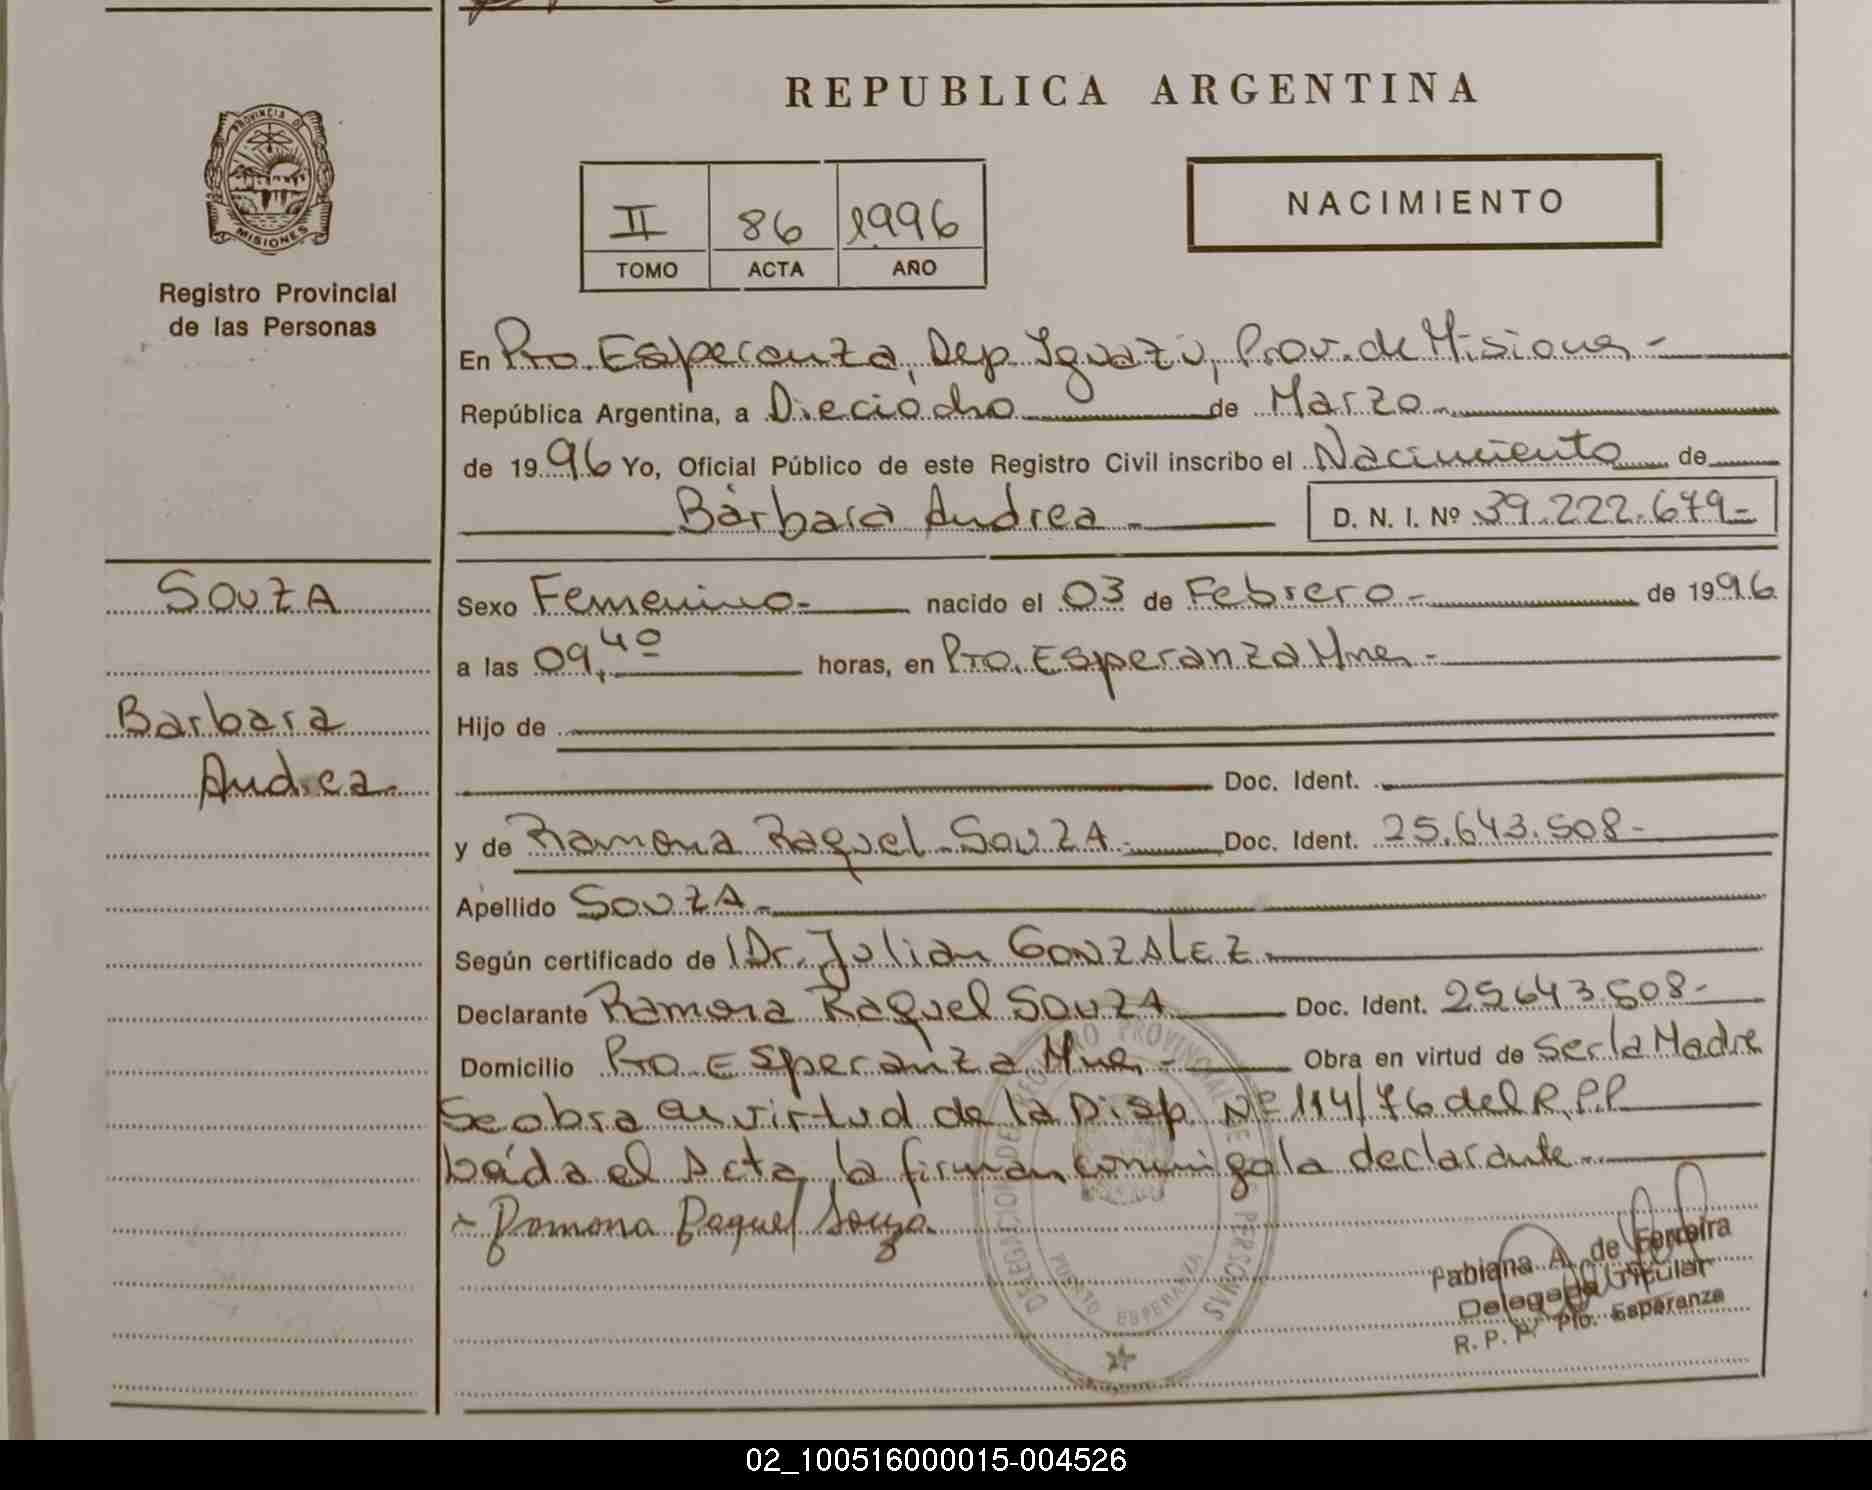 REPUBLICA ARGENTINA
PROVINCIA DE
MISIONES
Registro Provincial
de las Personas
II 86 1996
TOMO ACTA AÑO
NACIMIENTO
En Pto. Esperanza, Dep. Iguazú, Prov. de Misiones -
República Argentina, a Dieciocho de Marzo
de 1996 Yo, Oficial Público de este Registro Civil inscribo el Nacimiento de
Bárbara Andrea - D. N. I. Nº 39.222.679-
SOUZA
Barbara
Andrea
Sexo Femenino- nacido el 03 de Febrero - de 1996
a las 09,40 horas, en Pto. Esperanza Mnes -
Hijo de
Doc. Ident.
y de Ramona Raquel SOUZA Doc. Ident. 25.643.508-
Apellido SOUZA -
Según certificado de Dr. Julian GONZALEZ
Declarante Ramona Raquel SOUZA Doc. Ident. 25643.508-
Domicilio Pto Esperanza Mnes - Obra en virtud de Ser la Madre
Se obra en virtud de la Disp. Nº 114/76 del R.P.P
Leída el Acta, la firman conmigo la declarante
Ramona Raquel Souza
DELEGACION DEL REGISTRO PROVINCIAL DE PERSONAS
PUERTO ESPERANZA
Fabiana A. de Ferreira
Delegada Titular
R. P. P. Pto. Esperanza
02_100516000015-004526